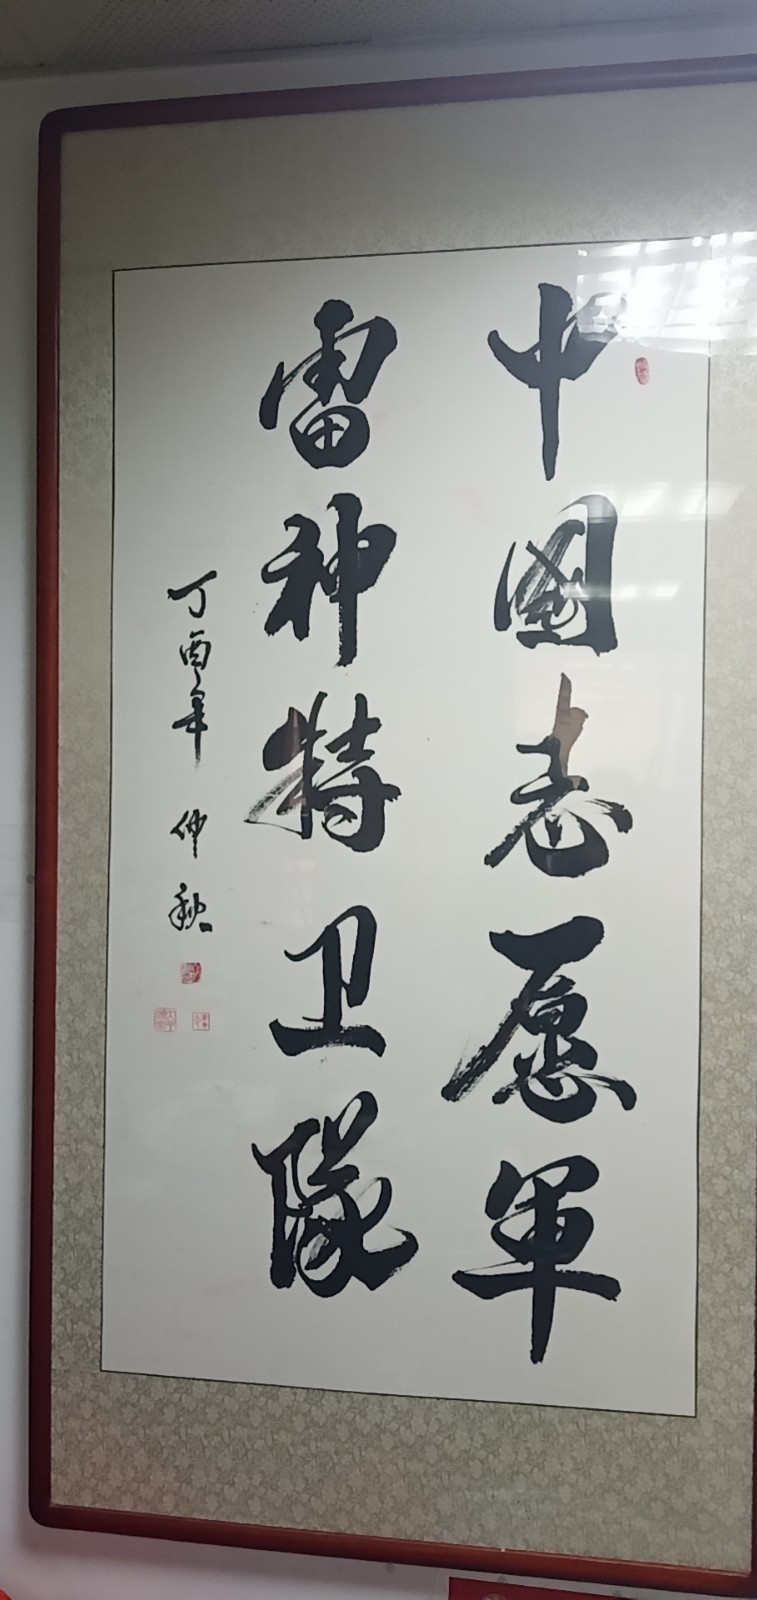 中國志愿軍
雷神特卫隊
丁酉年 仲秋